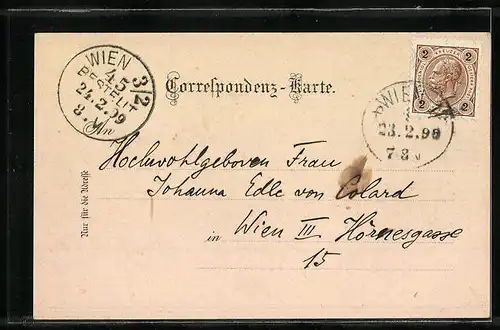 WIEN 3/2
45
BESTELLT
24.2.99
8
Correspondenz-Karte.
2 KREUZER 2
WIEN
23.2.99
7-8N
An
Hochwohlgeboren Frau
Johanna Edle von Colard
in Wien III Hörnesgasse
15
Nur für die Adresse